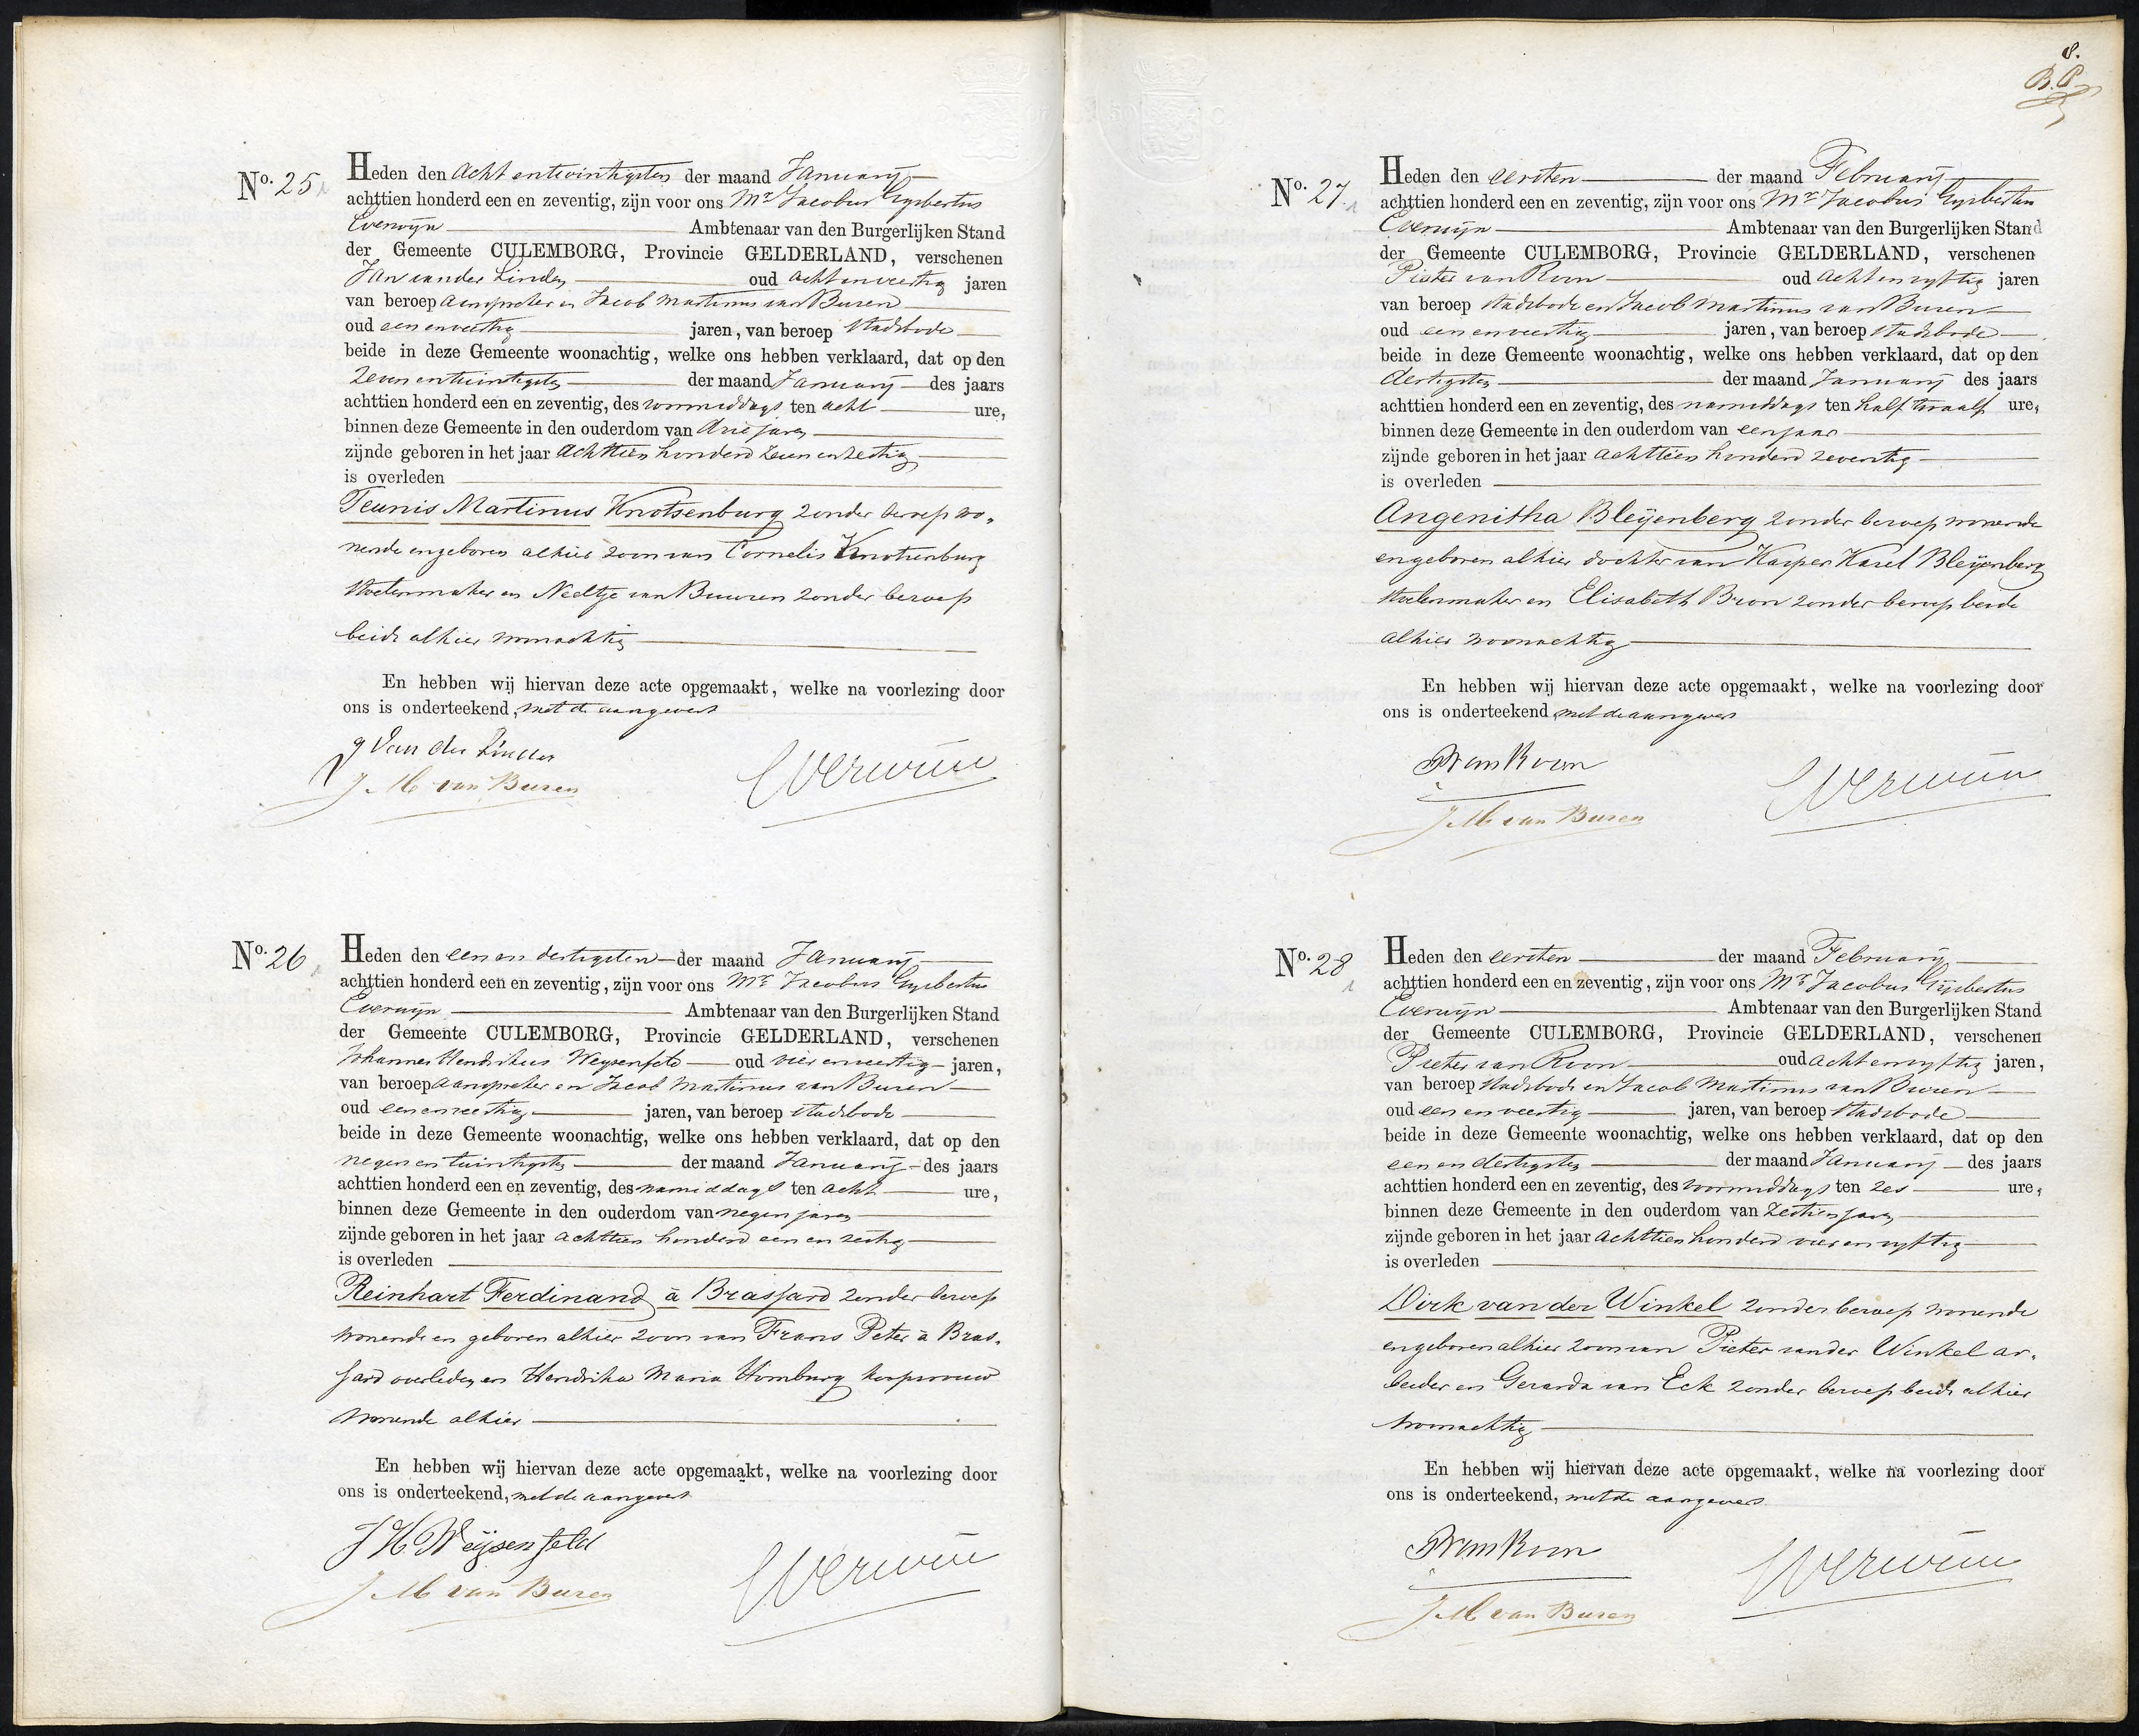 No. 25
Heden den acht en twintigsten der maand January
achttien honderd een en zeventig, zijn voor ons Mr. Jacobus Gysbertus
Everwijn Ambtenaar van den Burgerlijken Stand
der Gemeente CULEMBORG, Provincie GELDERLAND, verschenen
Jan van der Linden oud acht en veertig jaren
van beroep aanspreker en Jacob Martinus van Buren
oud een en veertig jaren, van beroep stadsbode
beide in deze Gemeente woonachtig, welke ons hebben verklaard, dat op den
zeven en twintigsten der maand January des jaars
achttien honderd een en zeventig, des voormiddags ten acht ure,
binnen deze Gemeente in den ouderdom van drie jaren
zijnde geboren in het jaar achttien honderd zeven en zestig
is overleden
Teunis Martinus Knotsenburg zonder beroep wo-
nende en geboren alhier zoon van Cornelis Knotsenburg
stoelenmaker en Neeltje van Buuren zonder beroep
beide alhier woonachtig
En hebben wij hiervan deze acte opgemaakt, welke na voorlezing door
ons is onderteekend, met de aangevers
J van der Linden
J. M. van Buren
Everwijn
No. 26
Heden den een en dertigsten der maand January
achttien honderd een en zeventig, zijn voor ons Mr. Jacobus Gysbertus
Everwijn Ambtenaar van den Burgerlijken Stand
der Gemeente CULEMBORG, Provincie GELDERLAND, verschenen
Johannes Hendrikus Weysenfeld oud vier en veertig jaren,
van beroep aanspreker en Jacob Martinus van Buren
oud een en veertig jaren, van beroep stadsbode
beide in deze Gemeente woonachtig, welke ons hebben verklaard, dat op den
negen en twintigsten der maand January des jaars
achttien honderd een en zeventig, des namiddags ten acht ure,
binnen deze Gemeente in den ouderdom van negen jaren
zijnde geboren in het jaar achttien honderd een en zestig
is overleden
Reinhart Ferdinand à Brassard zonder beroep
wonende en geboren alhier zoon van Frans Peter à Bras-
sard overleden en Hendrika Maria Homburg koopvrouw
wonende alhier
En hebben wij hiervan deze acte opgemaakt, welke na voorlezing door
ons is onderteekend, met de aangevers
J H Weijsenfeld
J. M. van Buren
Everwijn
8.
B. P.
No. 27
Heden den eersten der maand February
achttien honderd een en zeventig, zijn voor ons Mr. Jacobus Gysbertus
Everwijn Ambtenaar van den Burgerlijken Stand
der Gemeente CULEMBORG, Provincie GELDERLAND, verschenen
Pieter van Roon oud acht en vyftig jaren
van beroep stadsbode en Jacob Martinus van Buren
oud een en veertig jaren, van beroep stadsbode
beide in deze Gemeente woonachtig, welke ons hebben verklaard, dat op den
dertigsten der maand January des jaars
achttien honderd een en zeventig, des namiddags ten half twaalf ure,
binnen deze Gemeente in den ouderdom van een jaar
zijnde geboren in het jaar achttien honderd zeventig
is overleden
Angenitha Bleijenberg zonder beroep wonende
en geboren alhier dochter van Kasper Karel Bleijenberg
stoelenmaker en Elisabeth Bron zonder beroep beide
alhier woonachtig
En hebben wij hiervan deze acte opgemaakt, welke na voorlezing door
ons is onderteekend, met de aangevers
P van Roon
J. M. van Buren
Everwijn
No. 28
Heden den eersten der maand February
achttien honderd een en zeventig, zijn voor ons Mr. Jacobus Gijsbertus
Everwijn Ambtenaar van den Burgerlijken Stand
der Gemeente CULEMBORG, Provincie GELDERLAND, verschenen
Pieter van Roon oud acht en vyftig jaren,
van beroep stadsbode en Jacob Martinus van Buren
oud een en veertig jaren, van beroep stadsbode
beide in deze Gemeente woonachtig, welke ons hebben verklaard, dat op den
een en dertigsten der maand January des jaars
achttien honderd een en zeventig, des voormiddags ten zes ure,
binnen deze Gemeente in den ouderdom van zestien jaren
zijnde geboren in het jaar achttien honderd vier en vyftig
is overleden
Dirk van der Winkel zonder beroep wonende
en geboren alhier zoon van Pieter van der Winkel ar-
beider en Gerarda van Eck zonder beroep beide alhier
woonachtig
En hebben wij hiervan deze acte opgemaakt, welke na voorlezing door
ons is onderteekend, met de aangevers
P van Roon
J. M. van Buren
Everwijn